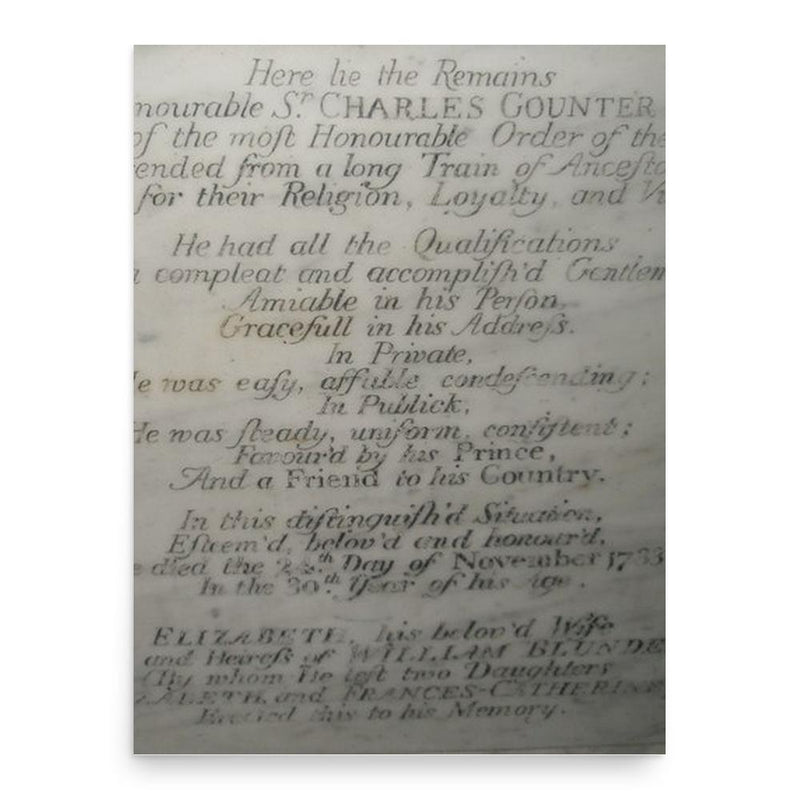 Here lie the Remains
nourable Sr. CHARLES GOUNTER
of the moſt Honourable Order of the
ended from a long Train of Anceſto
for their Religion, Loyalty, and Vi
He had all the Qualifications
compleat and accompliſh'd Gentlem
Amiable in his Perſon,
Gracefull in his Addreſs.
In Private,
He was eaſy, affable condeſcending;
In Publick,
He was ſteady, uniform, conſiſtent;
Favour'd by his Prince,
And a Friend to his Country.
In this diſtinguiſh'd Situation,
Eſteem'd, belov'd and honour'd,
e died the 24th. Day of November 1733
In the 30th. Year of his Age.
ELIZABETH, his belov'd Wife
and Heireſs of WILLIAM BLUNDE
(By whom He left two Daughters
ZABETH, and FRANCES-CATHERINE
Erected this to his Memory.